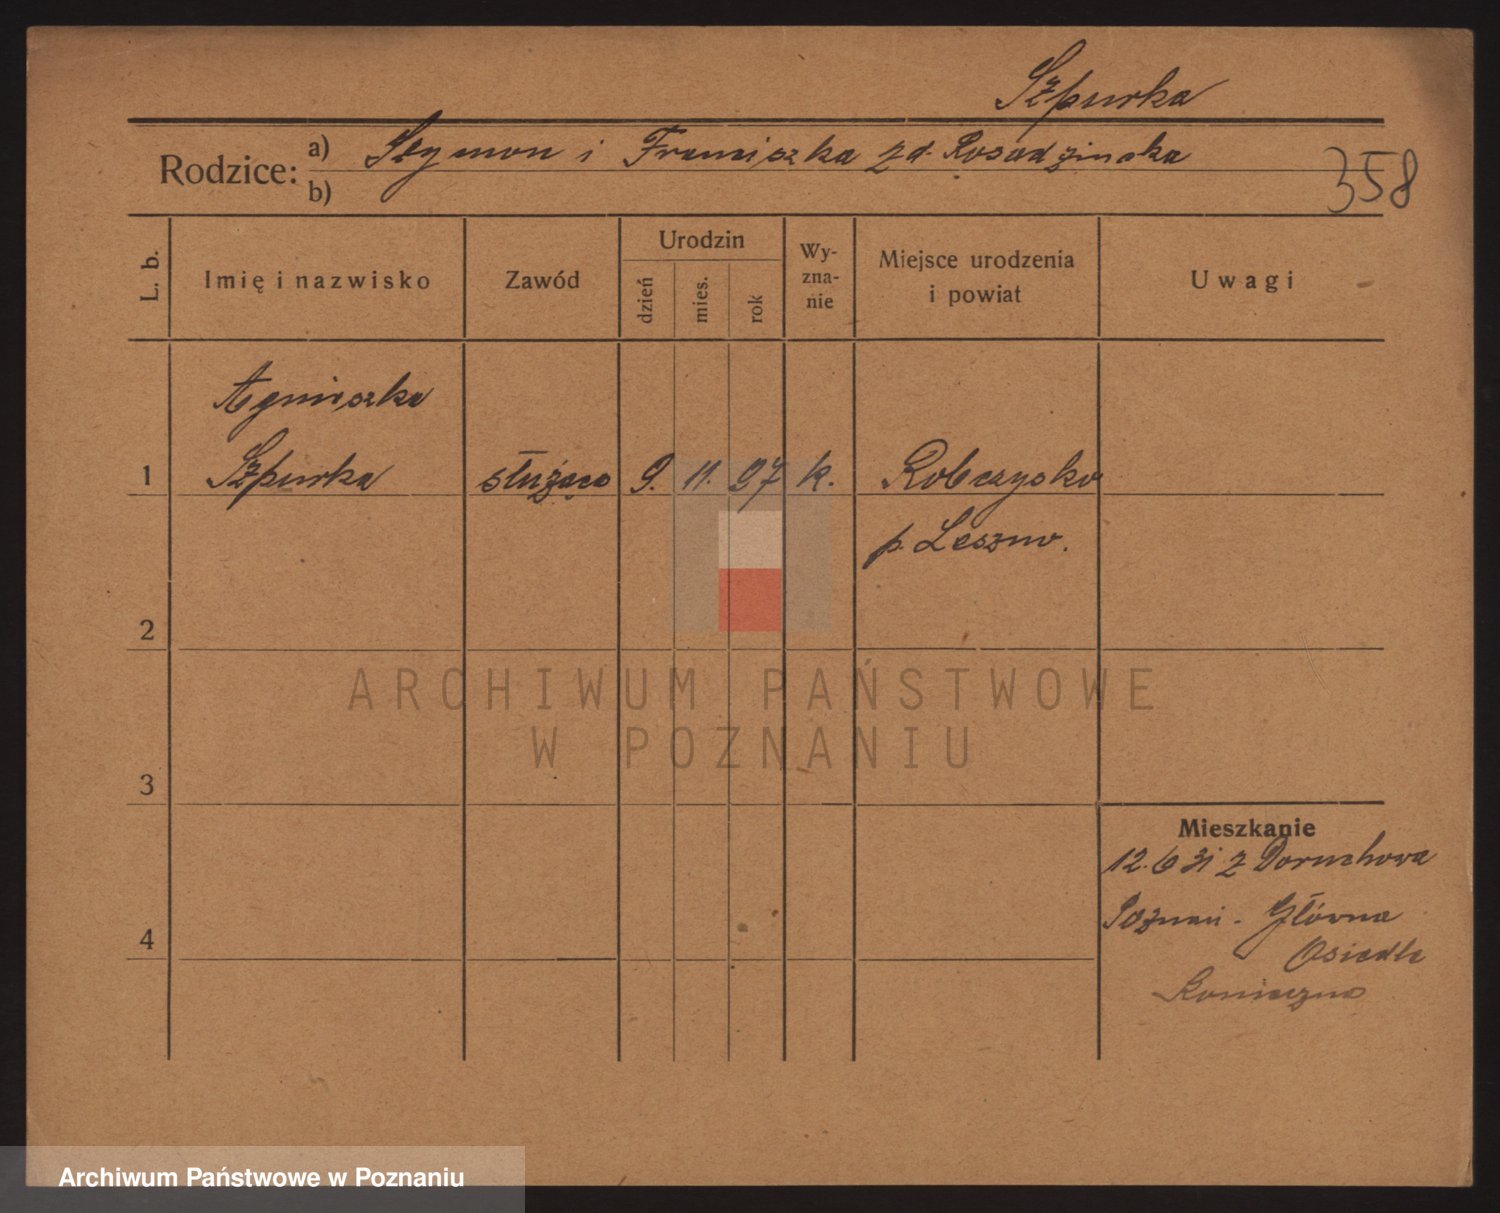 Szpurka
Rodzice: a) Szymon i Franciszka zd. Rosadzinska
b)
358
L. b.
Imię i nazwisko
Zawód
Urodzin
dzień
mies.
rok
Wy-
zna-
nie
Miejsce urodzenia
i powiat
Uwagi
Agnieszka
1 Szpurka służąca 9. 11. 97 k. Robczysko
p. Leszno.
2
ARCHIWUM PAŃSTWOWE
W POZNANIU
3
Mieszkanie
12.6 31 z Doruchowa
Poznań - Główna
4
Osiedle
Konieczna
Archiwum Państwowe w Poznaniu